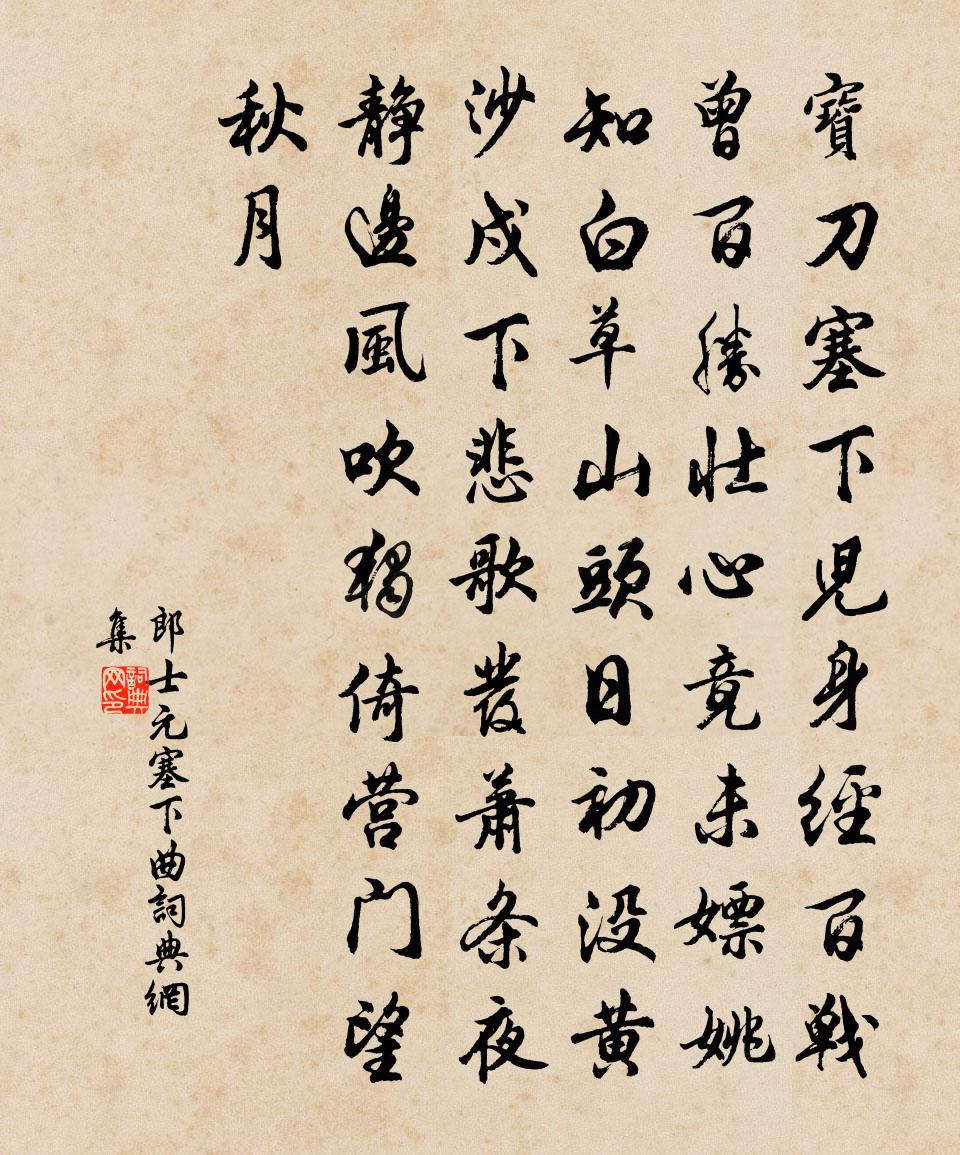 寶刀塞下兒身經百戰
曾百勝壯心竟未嫖姚
知白草山頭日初没黄
沙戍下悲歌發蕭条夜
靜邊風吹獨倚营门望
秋月
郎士元塞下曲詞典網
集
詞典
网印